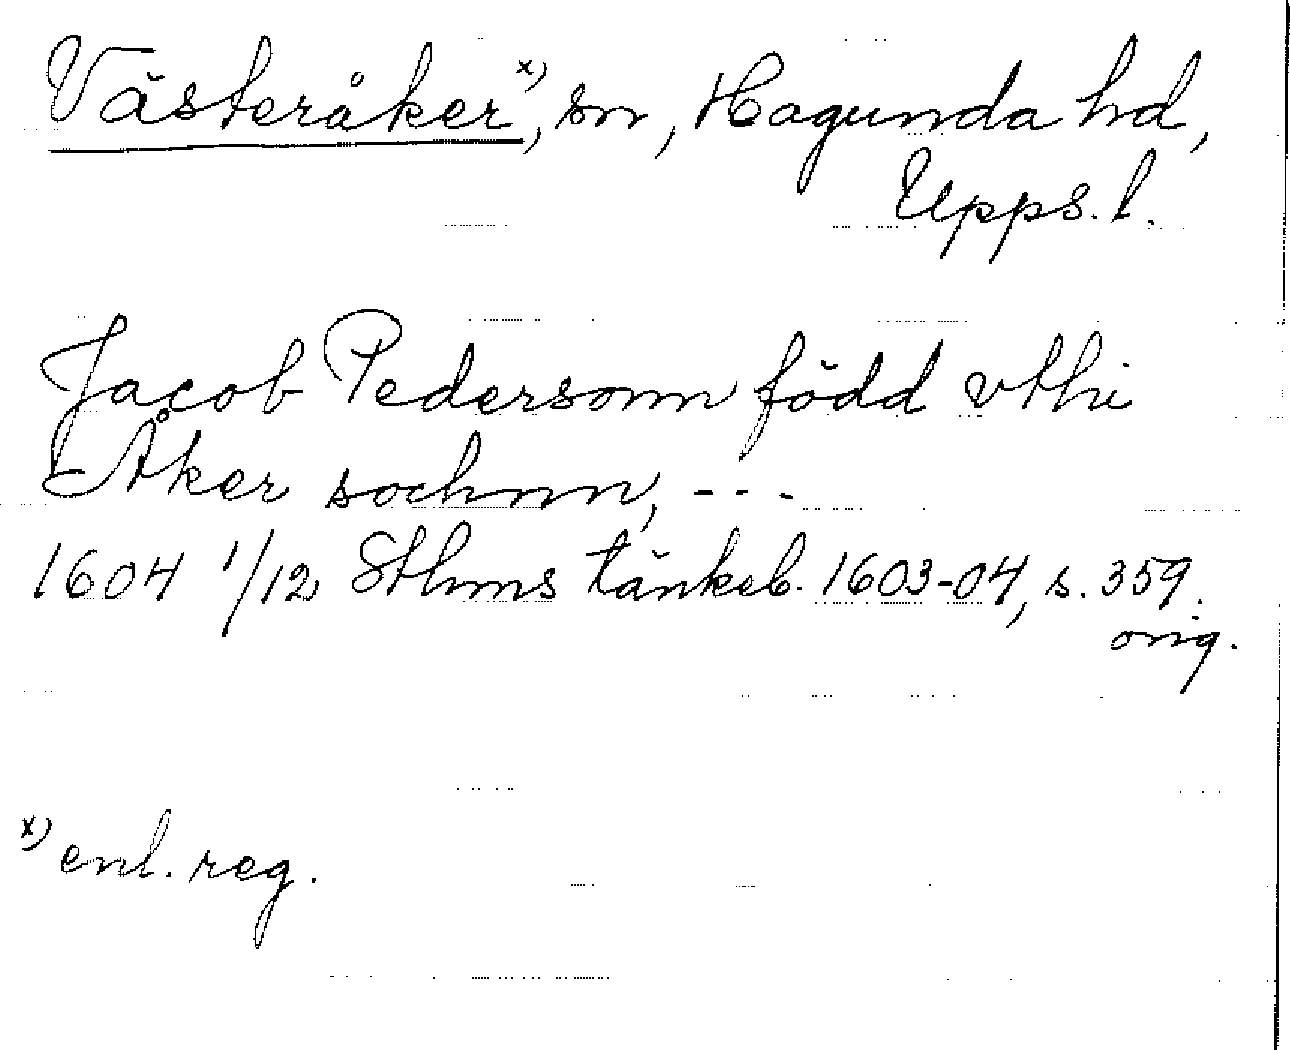 Västeråker x), sn, Hagunda hd,
Upps. l.
Jacob Pedersonn född vthi
Åker sochnn, - - -
1604 1/12 Sthms tänkeb. 1603-04, s. 359.
orig.
x) enl. reg.